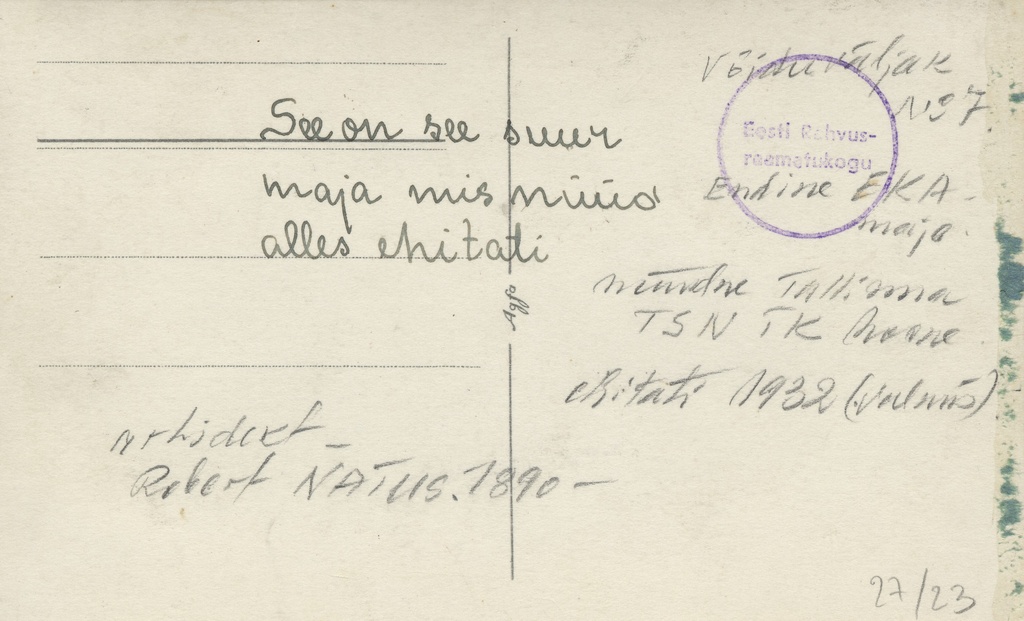 See on see suur
maja mis nüüd
alles ehitati
Võidu väljak
No 7.
Eesti Rahvus-
raamatukogu
Endine EKA -
maja.
nüüdne Tallinna
TSN TK hoone
ehitati 1932 (valmis)
arhidekt -
Robert NATUS. 1890 -
27/23